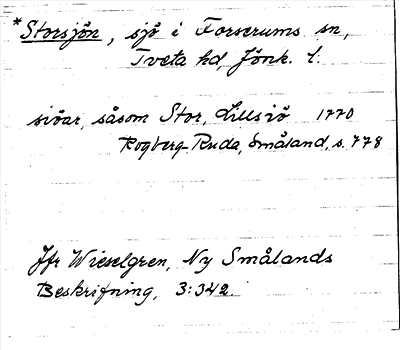 *Storsjön, sjö i Forserums sn,
Tveta hd, Jönk. l.
siöar, såsom Stor, Lillsiö 1770
Rogberg-Ruda, Småland, s. 778
Jfr Wieselgren, Ny Smålands
Beskrifning, 3:342.